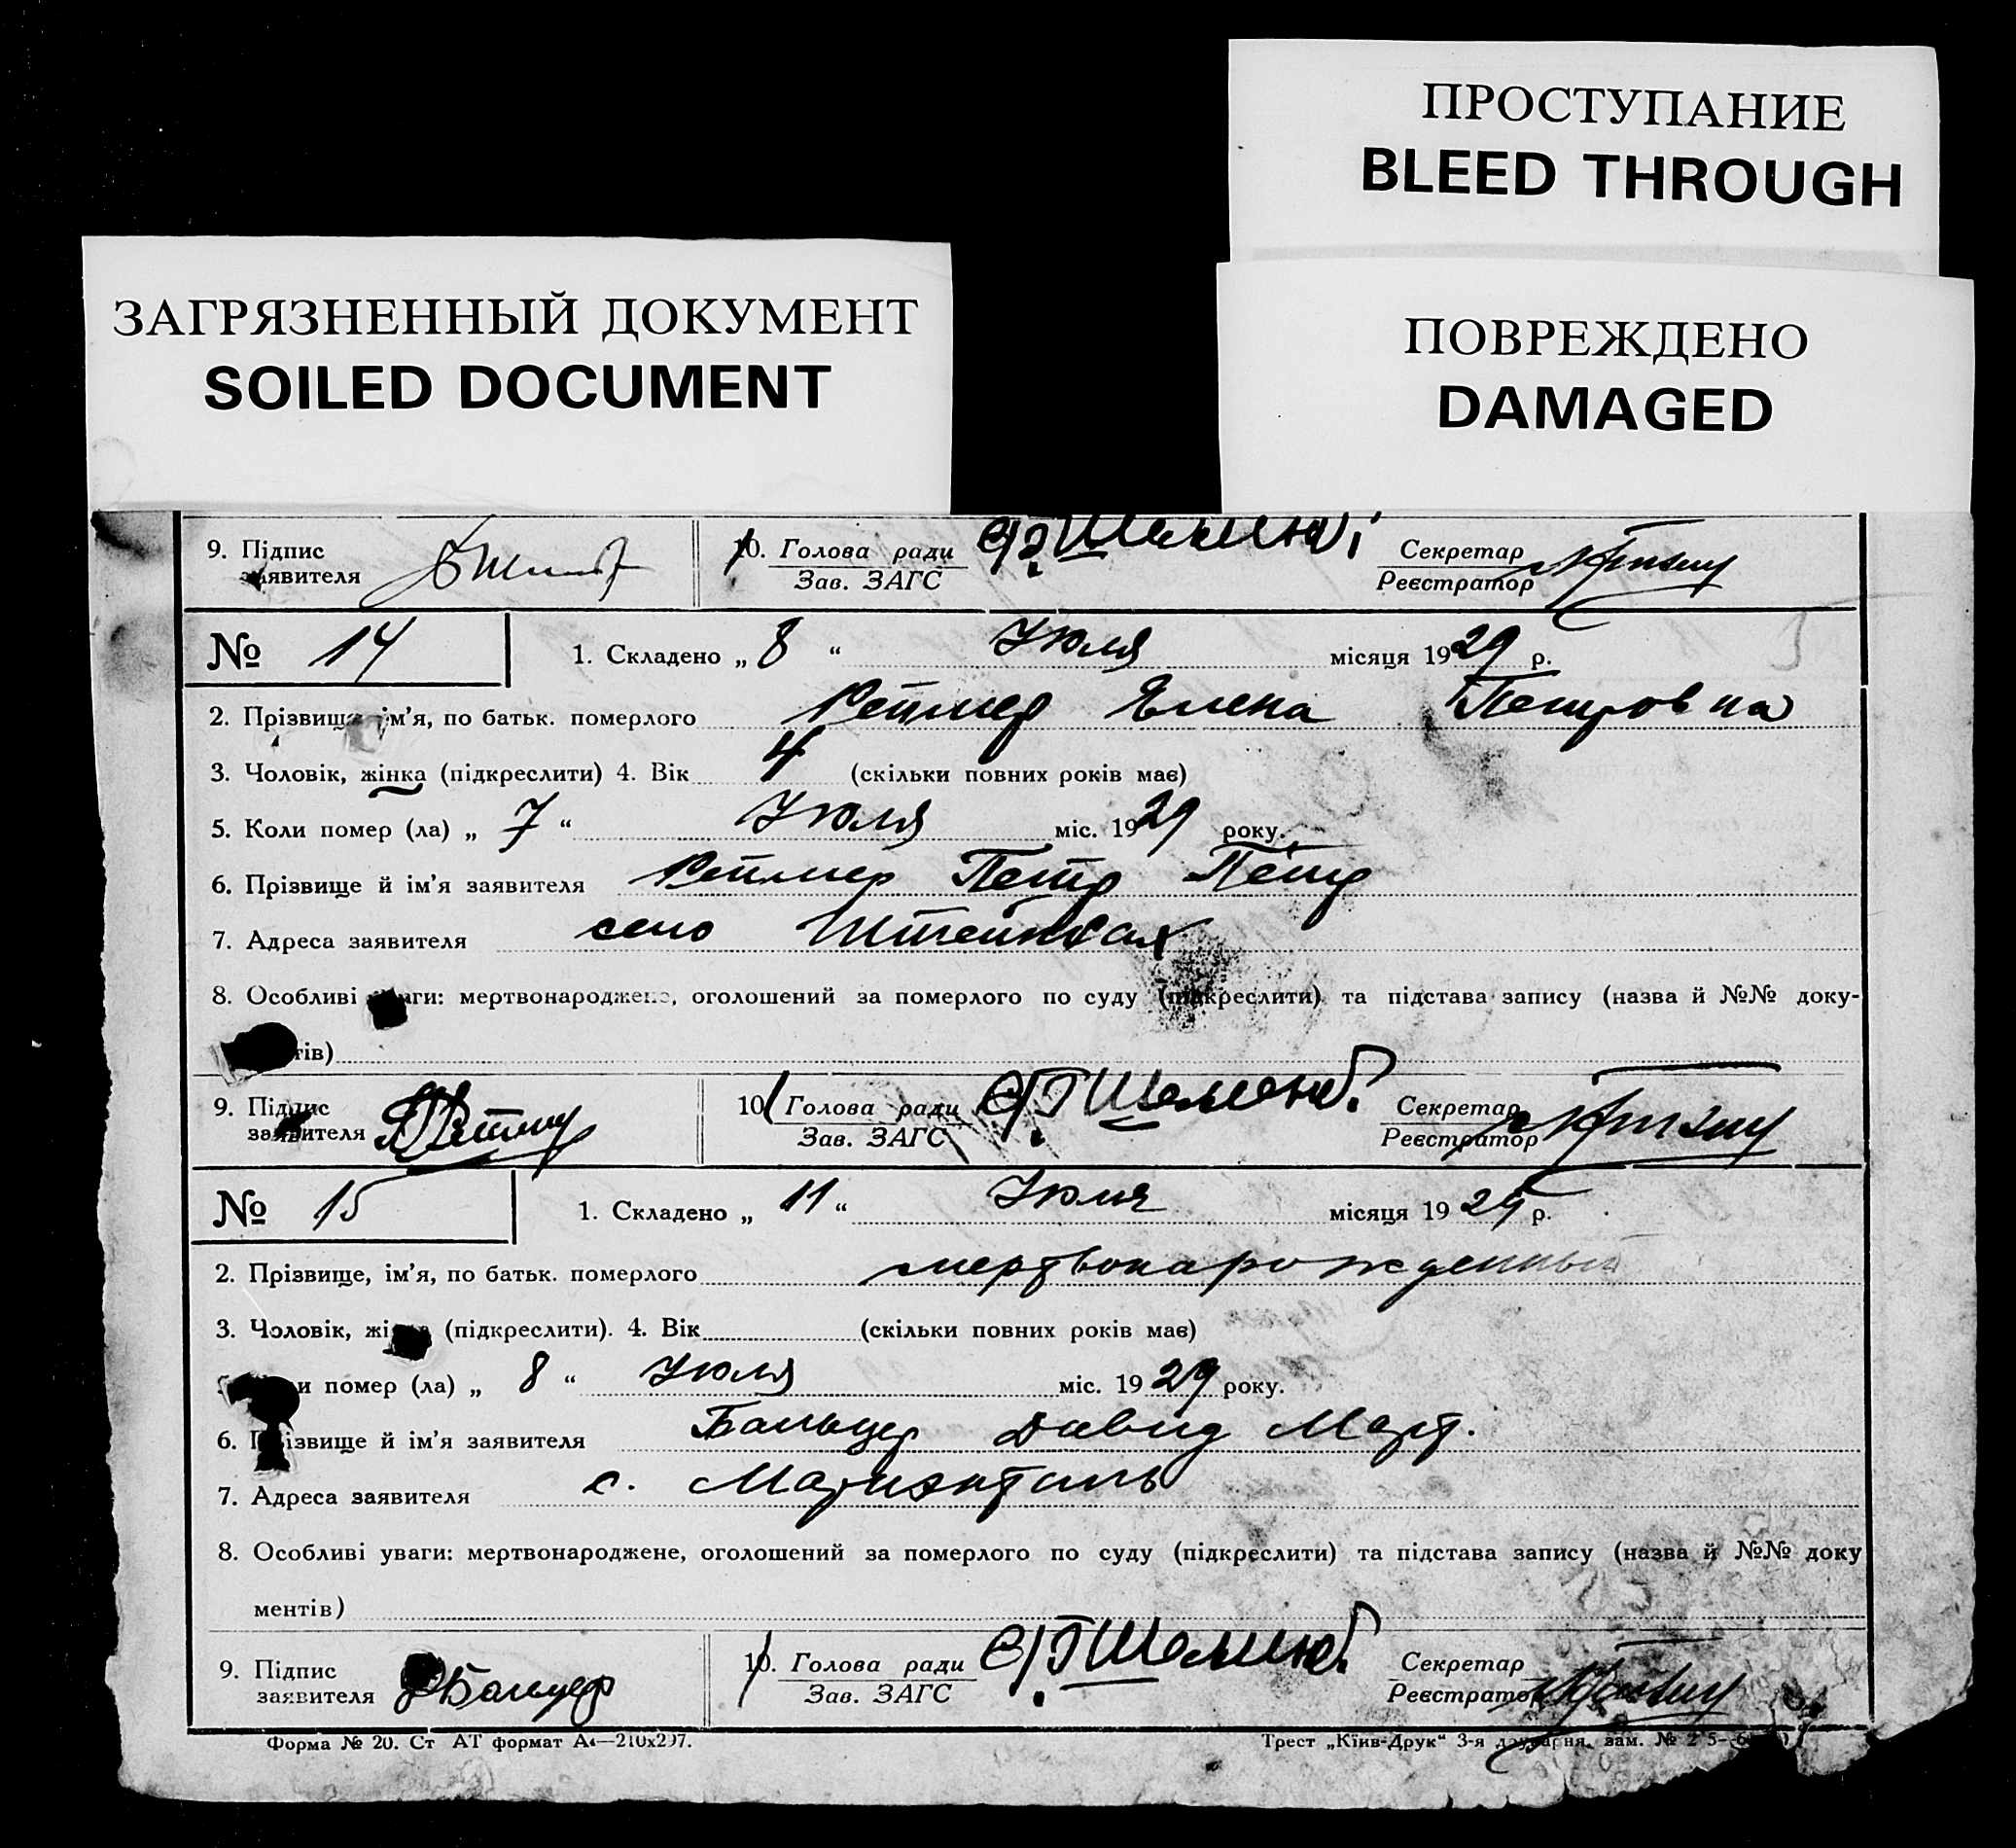 ПРОСТУПАНИЕ
BLEED THROUGH
ЗАГРЯЗНЕННЫЙ ДОКУМЕНТ
SOILED DOCUMENT
ПОВРЕЖДЕНО
DAMAGED
9. Підпис заявителя 10. Голова ради Зав. ЗАГС Секретар Реєстратор
№ 14 1. Складено „ 8 “ Июля місяця 1929 р.
2. Прізвище ім’я, по батьк. померлого Реймер Елена Петровна
3. Чоловік, жінка (підкреслити) 4. Вік 4 (скільки повних років має)
5. Коли помер (ла) „ 7 “ Июля міс. 1929 року.
6. Прізвище й ім’я заявителя Реймер Петр Петр
7. Адреса заявителя село Штейнбах
8. Особливі уваги: мертвонароджене, оголошений за померлого по суду (підкреслити) та підстава запису (назва й №№ доку-
тів)
9. Підпис заявителя 10 Голова ради Зав. ЗАГС Секретар Реєстратор
№ 15 1. Складено „ 11 “ Июля місяця 1929 р.
2. Прізвище, ім’я, по батьк. померлого мертвонарожденный
3. Чоловік, жі (підкреслити). 4. Вік (скільки повних років має)
и помер (ла) „ 8 “ Июля міс. 1929 року.
6. Прізвище й ім’я заявителя Бальцер Давид Март.
7. Адреса заявителя с. Мариэнталь
8. Особливі уваги: мертвонароджене, оголошений за померлого по суду (підкреслити) та підстава запису (назва й №№ доку
ментів)
9. Підпис заявителя Бальцер 10. Голова ради Зав. ЗАГС Секретар Реєстратор
Форма № 20. Ст АТ формат А4—210х297. Трест „Київ-Друк“ 3-я друкарня. зам. №